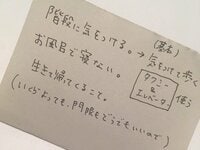 階段に気をつける。→(基本)気をつけて歩く
お風呂で寝ない。
タクシー
&
エレベーター
使う
生きて帰ってくること。
(いくらよっても、門限もどうでもいいので)